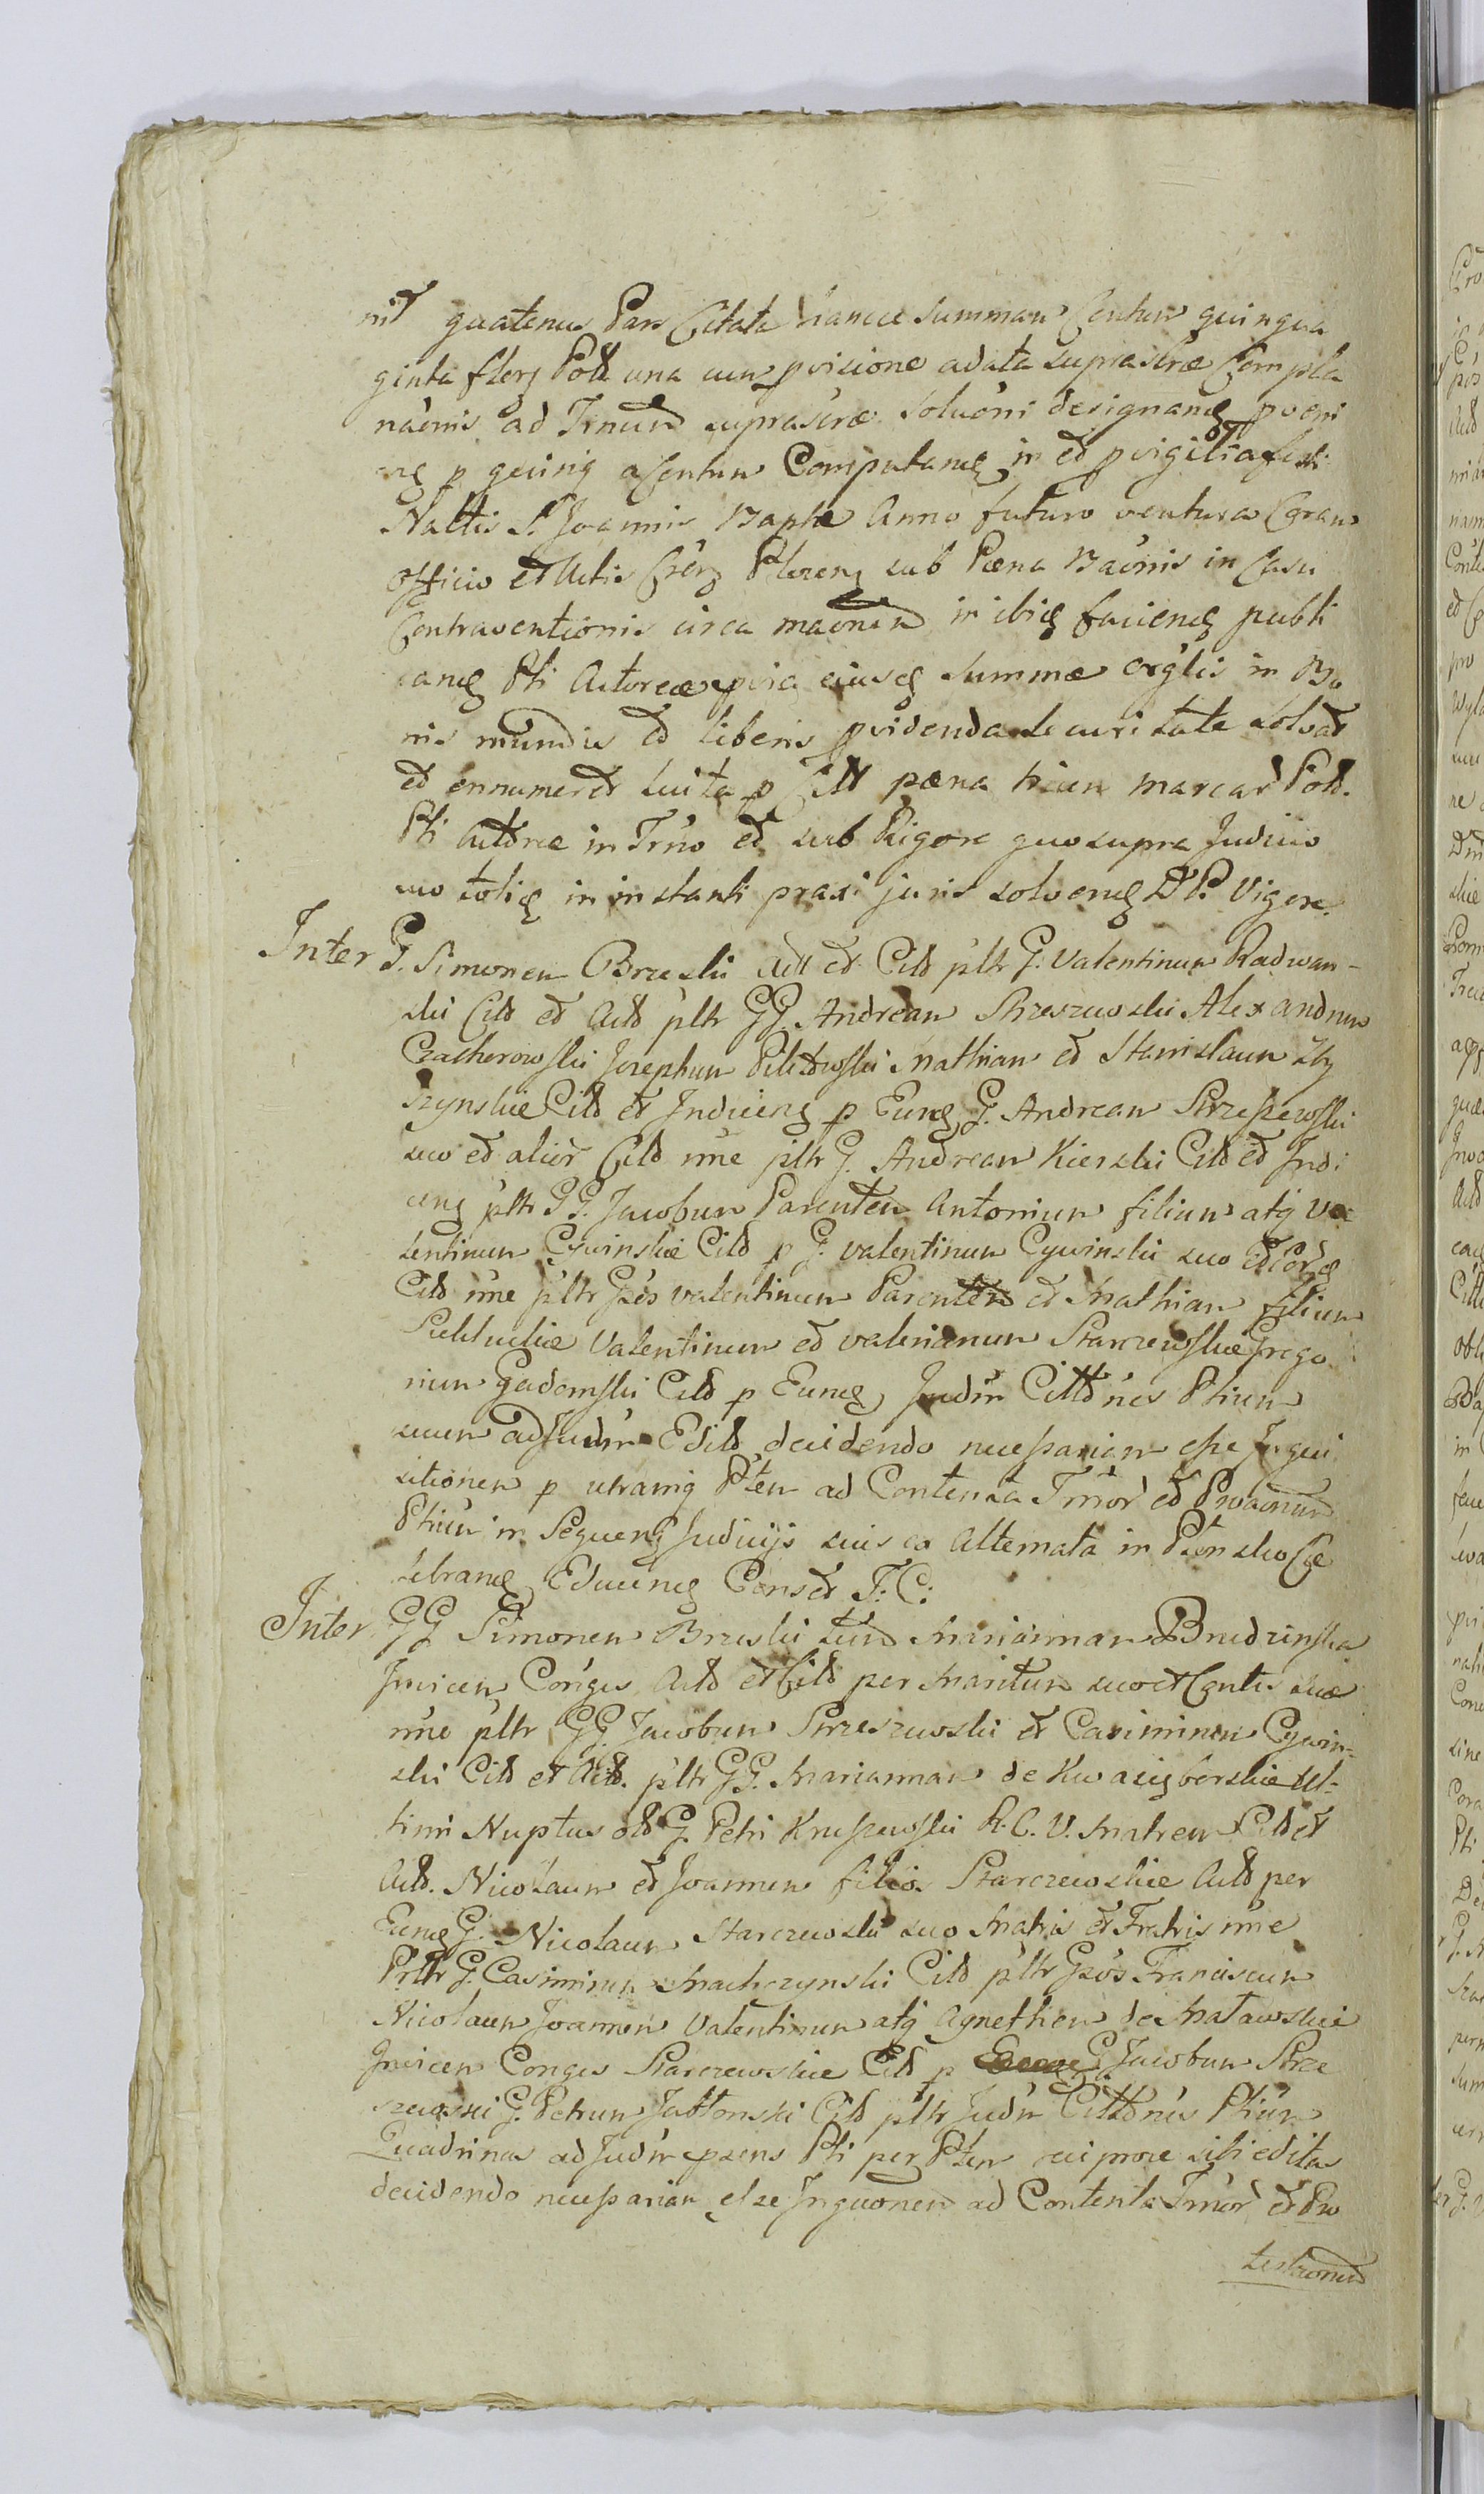 nit quatenus Pars Citata hancce Summam Centum quinqua
ginta flerz Poll una cum pvisione a data suprascræ Compla
nãonis ad Trnum suprascræ Soluõni designanđ pveni
enđ p quinq a Centum Computanđ in et pvigilia festi
Nattis S. Joannis Baptæ Anno futuro ventura Coram
Officio et Actis Plocenđ sub Pæna Bãonis in Casu
Contraventionis circa mãonem in ibiđ faciend publi
canđ Pti Actoreæ pvia eiusđ Summæ orglis in Bo
nis mundis et liberis pvidenda Securitate Solvat
et ennumeret Luita p Citt pæna trium marcar Poll.
Pti Actoreæ in Trno et sub Rigore quo supra Judicio
in instanti praxi juris solvenđ D P. Vigore.
Inter G. Simonem Brzeski Act et Citt pltr G. Valentinum Radwan-
ski Citt et Act pltr GG. Andream Strzeszewski Alexandrum
Czacherowski Josephum Mathiam et Stanislaum
szynskie Citt et Inducenđ p Eunđ G. Andream Strzeszewski
suo et alior Citt nne pltr G. Andream Kierski Citt et Indu
cenđ pltr GG. Jacobum Parentem Antonium filium atq Va
lentinum Cywinskie Citt p G. Valentinum Cywinski suo et
Citt nne pltr Gsos Valentinum Parentem et Mathiam filium
Valentinum et Valerianum Starczewskie Grego
rium Gadomski Citt p Eunđ Judm Cittonis Ptium
suum ad Judm Edit decidendo necessariam esse Inqui
sitionem p utramq Ptem ad Contenta Trnor et
Ptium in Sequenđ Judicijs suis ex Alternata in Płonsko Ce
lebranđ Educenđ Censet T: C:
Inter GG Simonem Brzeski tum Mariannam Brudzinska
Invicem Conges Act et Citt per Maritum suo et suæ
nne pltr GG. Jacobum Strzeszewski et Casimirum Cywin-
ski Citt et Act. pltr GG. Mariannam de Kwasigborskie Ul-
timi Nuptus olt G. Petri Kruszewski R. C. V. Matrem Citt et
Act. Nicolaum et Joannem filios Starczewskie Act per
Eunđ G. Nicolaum Starczewski suo Matris et Fratris nne
Pltr G. Casimirum Machczynski Citt pltr Gsos Franciscum
Nicolaum Joannem Valentinum atq Agnethem de Matawskie
Invicem Conges Starczewskie Citt p G. Jacobum Strze
szewski G. Petrum Jabłonski Citt pltr Judm Cittonis Ptium
Quadrinas ad Judm psens Pti per Ptem reciproce sibi editas
decidendo necessariam esse Inquonem ad Contenta Trnor et Pro
testãonum